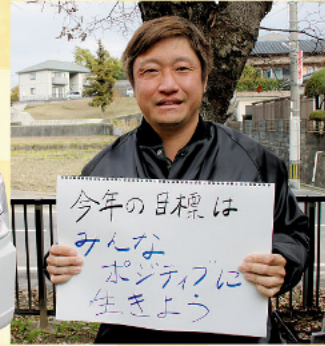 今年の目標は
みんな
ポジティブに
生きよう